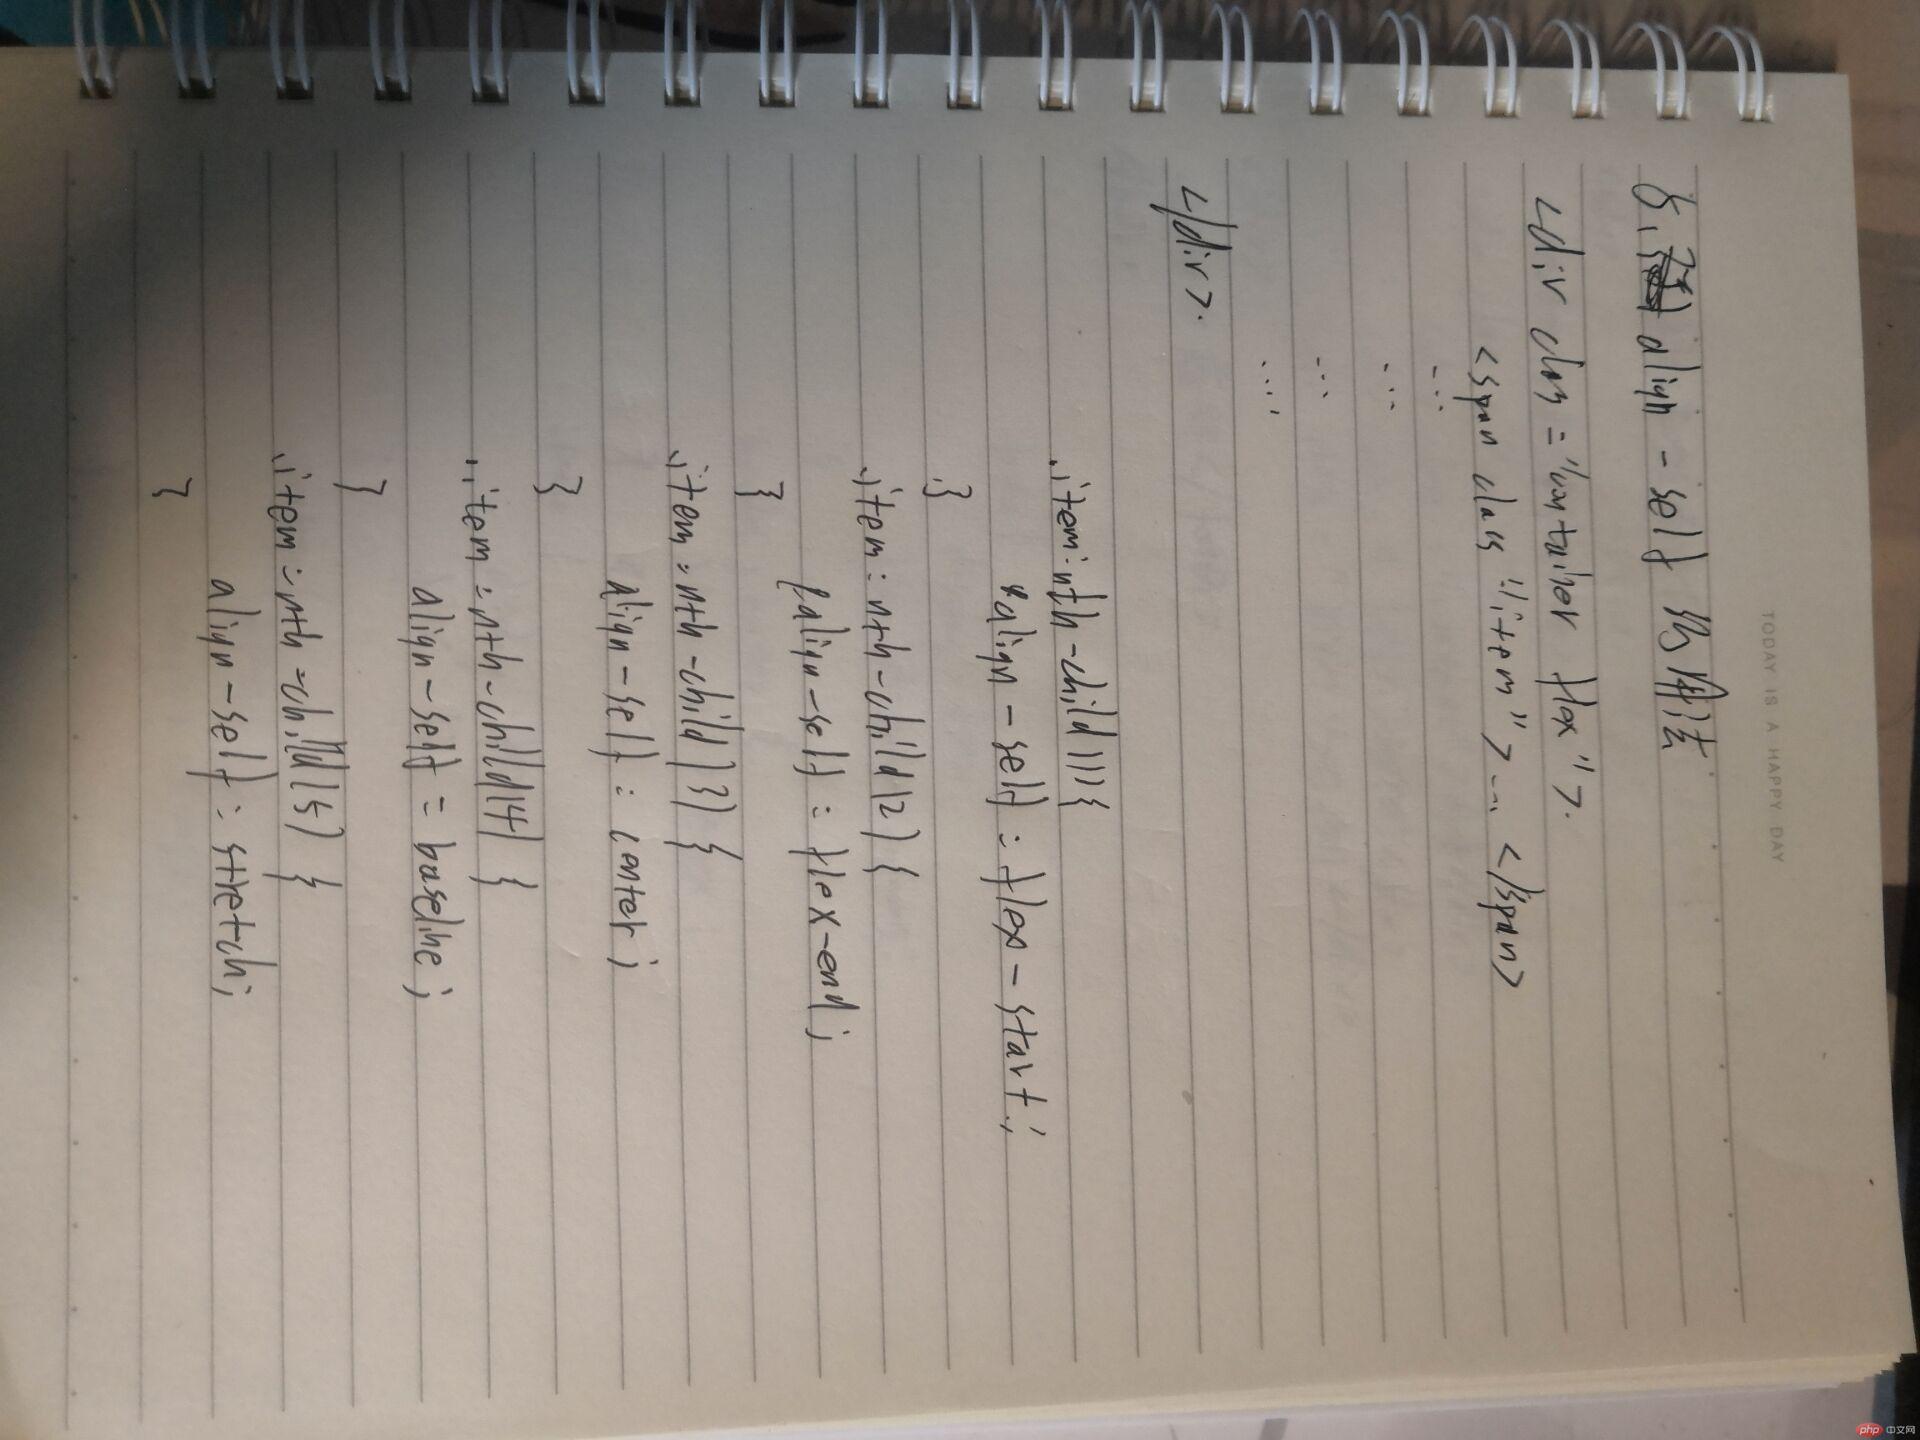 TODAY IS A HAPPY DAY
align-self 的用法
<div class="container flex">.
<span class "item">... </span>
...
...
...
...
</div>.
.item:nth-child(1){
align-self: flex-start;
}
.item:nth-child(2){
align-self: flex-end;
}
.item:nth-child(3) {
align-self: center;
}
.item:nth-child(4) {
align-self = baseline;
}
.item:nth-child(5) {
align-self: stretch;
}
php 中文网